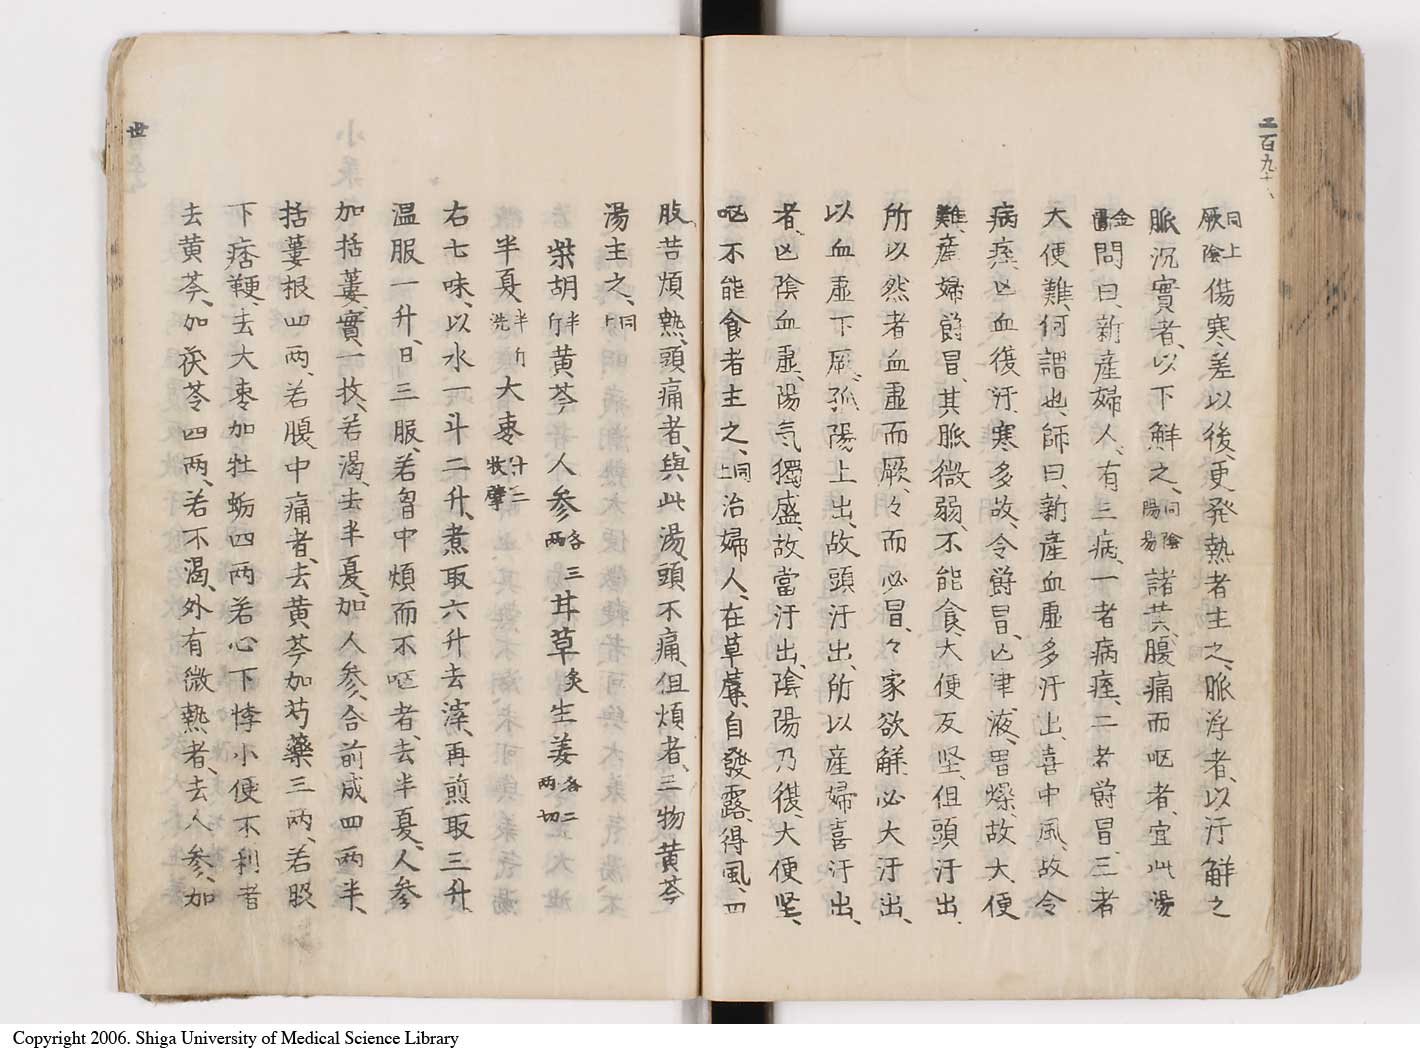 二百九十八
同上厥陰傷寒差以後、更発熱者主之、脈浮者、以汗解之
脈沉實者、以下解之、同陰陽易諸黄、腹痛而呕者、宜此湯
金匱問曰、新産婦人、有三病、一者病痓、二者欝冒、三者
大便難、何謂也、師曰、新産血虚、多汗出、喜中風、故令
病痓、亡血復汗、寒多、故令欝冒、亡津液、胃燥、故大便
難、産婦欝冒、其脈微弱、不能食、大便反坚、但頭汗出
所以然者、血虚而厥、々而必冒、々家欲解、必大汗出、
以血虚下厥、孤陽上出、故頭汗出、所以産婦喜汗出、
者、亡陰血虚、陽气獨盛、故當汗出、陰陽乃復、大便坚、
呕不能食者主之、同上治婦人、在草蓐、自發露、得風、四
肢苦煩熱、頭痛者、與此湯、頭不痛、但煩者、三物黄芩
湯主之、同上
柴胡半斤黄芩 人参各三兩 甘草炙 生姜各二兩切
半夏半斤洗 大枣十二枚擘
右七味、以水一斗二升、煮取六升、去滓、再煎取三升
温服一升、日三服、若胷中煩而不呕者、去半夏、人参
加括蔞實一枚、若渴、去半夏、加人参、合前成四兩半、
括蔞根四兩、若腹中痛者、去黄芩加芍藥三兩、若脇
下痞鞕、去大枣加牡蛎四兩若心下悸小便不利者
去黄芩、加茯苓四兩、若不渴、外有微熱者、去人参、加